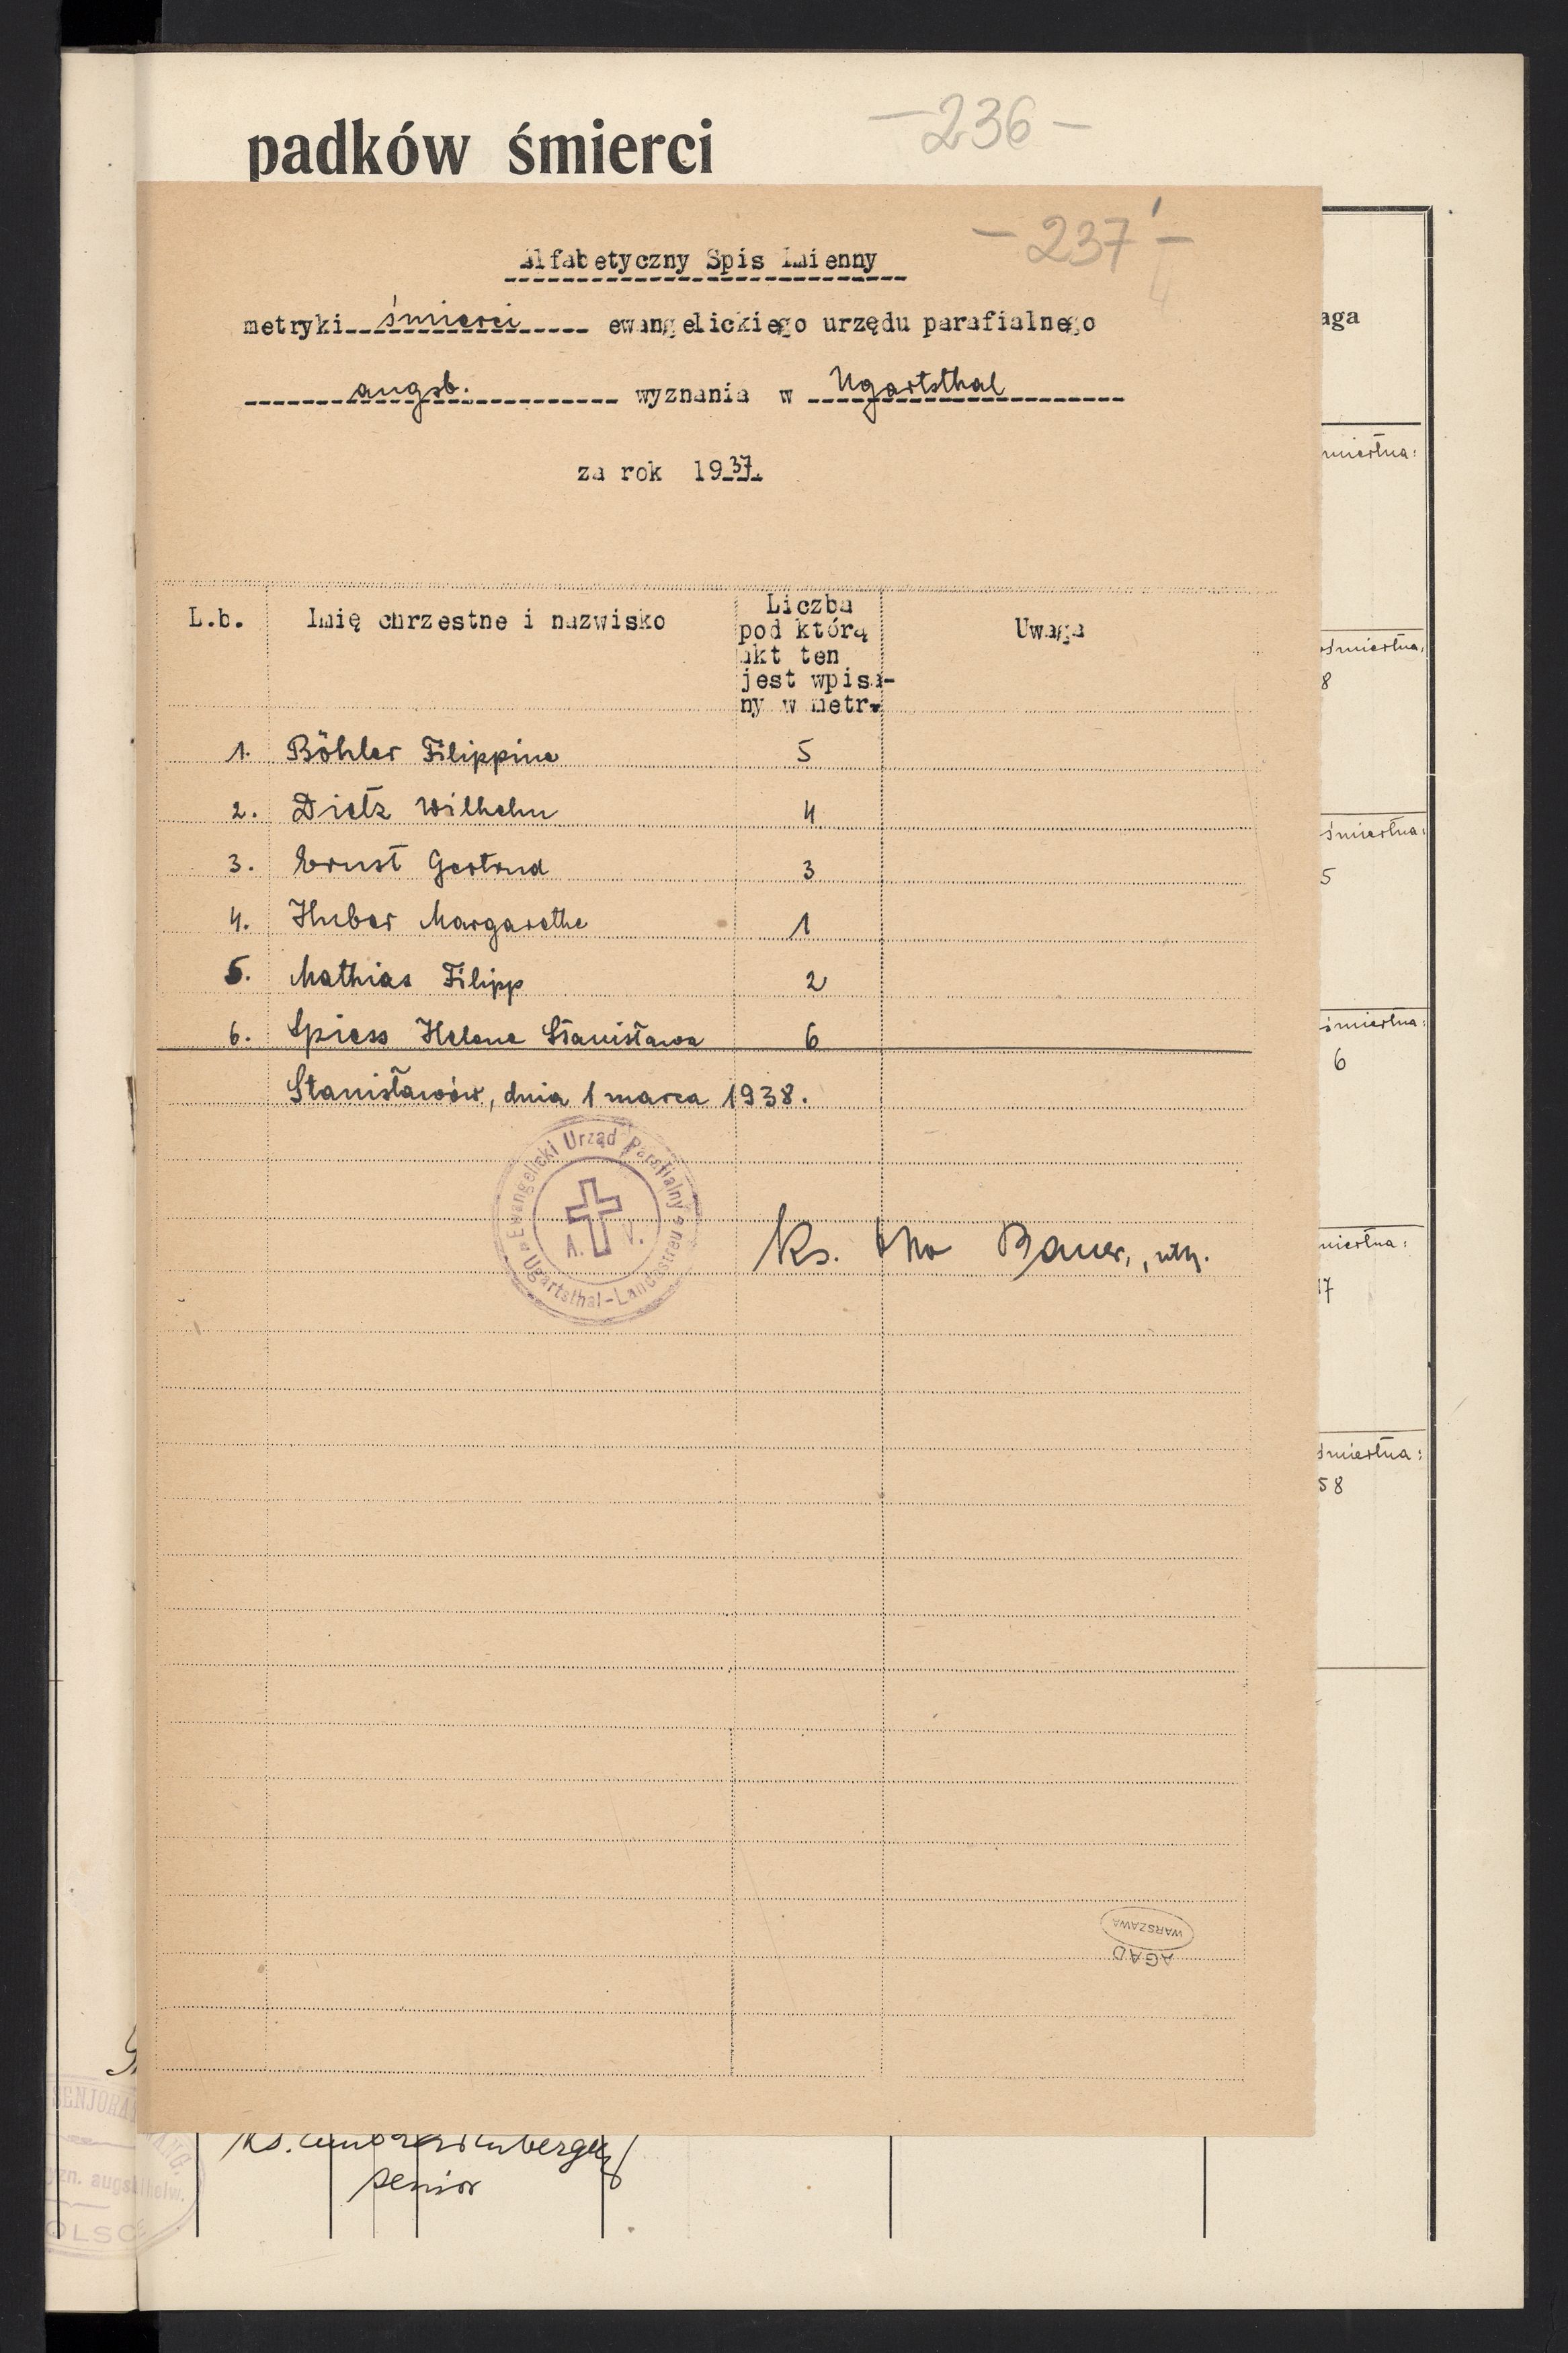 padków śmierci
- 236 -
- 237 -
Alfabetyczny Spis Imienny
metryki śmierci ewangelickiego urzędu parafialnego
augsb. wyznania w Ugartsthal
za rok 1937.
L.b. Imię chrzestne i nazwisko Liczba pod którą akt ten jest wpisa- ny w metr. Uwaga
1. Böhler Filippine 5
2. Dietz Wilhelm 4
3. Ernst Gertrud 3
4. Huber Margarethe 1
5. Mathias Filipp 2
6. Spiess Helene Stanisława 6
Stanisławów, dnia 1 marca 1938.
Ewangelicki Urząd Parafialny
A. V.
Ugartsthal-Landestreu
Ks. Bauer,
WARSZAWA
AGAD
aga
śmiertna:
ośmiertna:
8
śmiertna:
5
śmiertna:
6
miertna:
17
śmiertna:
58
Ks.
senior
SENJORA
ANG.
yzn. augs. i helw.
OLSCE